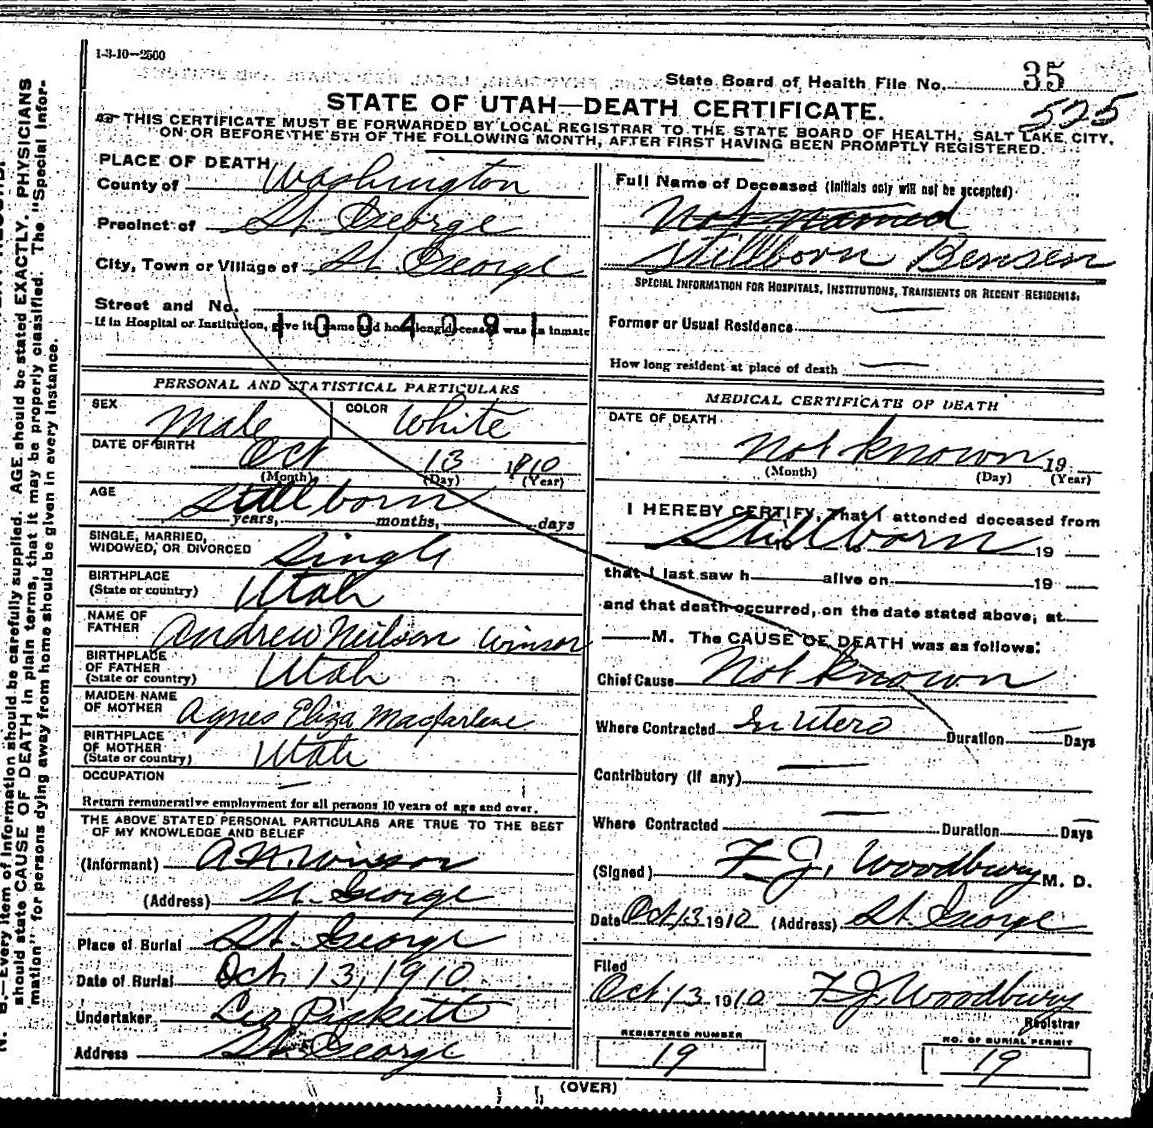 1-3-10—2500
State Board of Health File No. 35
525
STATE OF UTAH—DEATH CERTIFICATE.
THIS CERTIFICATE MUST BE FORWARDED BY LOCAL REGISTRAR TO THE STATE BOARD OF HEALTH, SALT LAKE CITY,
ON OR BEFORE THE 5TH OF THE FOLLOWING MONTH, AFTER FIRST HAVING BEEN PROMPTLY REGISTERED.
PLACE OF DEATH
County of Washington
Precinct of St. George
City, Town or Village of St. George
Street and No.
If in Hospital or Institution, give its name and how long deceased was inmate
1 0 0 4 0 9 1
PERSONAL AND STATISTICAL PARTICULARS
SEX Male COLOR White
DATE OF BIRTH Oct 13 1910
(Month) (Day) (Year)
AGE Stillborn
years, months, days
SINGLE, MARRIED,
WIDOWED, OR DIVORCED Single
BIRTHPLACE
(State or country) Utah
NAME OF
FATHER Andrew Neilson Winsor
BIRTHPLACE
OF FATHER
(State or country) Utah
MAIDEN NAME
OF MOTHER Agnes Eliza Macfarlane
BIRTHPLACE
OF MOTHER
(State or country) Utah
OCCUPATION —
Return remunerative employment for all persons 10 years of age and over.
THE ABOVE STATED PERSONAL PARTICULARS ARE TRUE TO THE BEST
OF MY KNOWLEDGE AND BELIEF
(Informant) A N. Winsor
(Address) St. George
Place of Burial St. George
Date of Burial Oct. 13, 1910
Undertaker Pickett
Address St. George
Full Name of Deceased (Initials only will not be accepted)
Not named
Stillborn Bensen
SPECIAL INFORMATION FOR HOSPITALS, INSTITUTIONS, TRANSIENTS OR RECENT RESIDENTS:
Former or Usual Residence —
How long resident at place of death —
MEDICAL CERTIFICATE OF DEATH
DATE OF DEATH
Not known 19
(Month) (Day) (Year)
I HEREBY CERTIFY, That I attended deceased from
Stillborn 19
that I last saw h alive on 19
and that death occurred, on the date stated above, at
M. The CAUSE OF DEATH was as follows:
Chief Cause Not Known
Where Contracted In Utero Duration — Days
Contributory (if any) —
Where Contracted — Duration — Days
(Signed) F. J. Woodbury M. D.
Date Oct 13 1910 (Address) St. George
Filed
Oct 13 1910 F J Woodbury
Registrar
REGISTERED NUMBER
19
NO. OF BURIAL PERMIT
19
(OVER)
N. B.—Every item of information should be carefully supplied. AGE should be stated EXACTLY. PHYSICIANS
should state CAUSE OF DEATH in plain terms, that it may be properly classified. The "Special Infor-
mation" for persons dying away from home should be given in every instance.